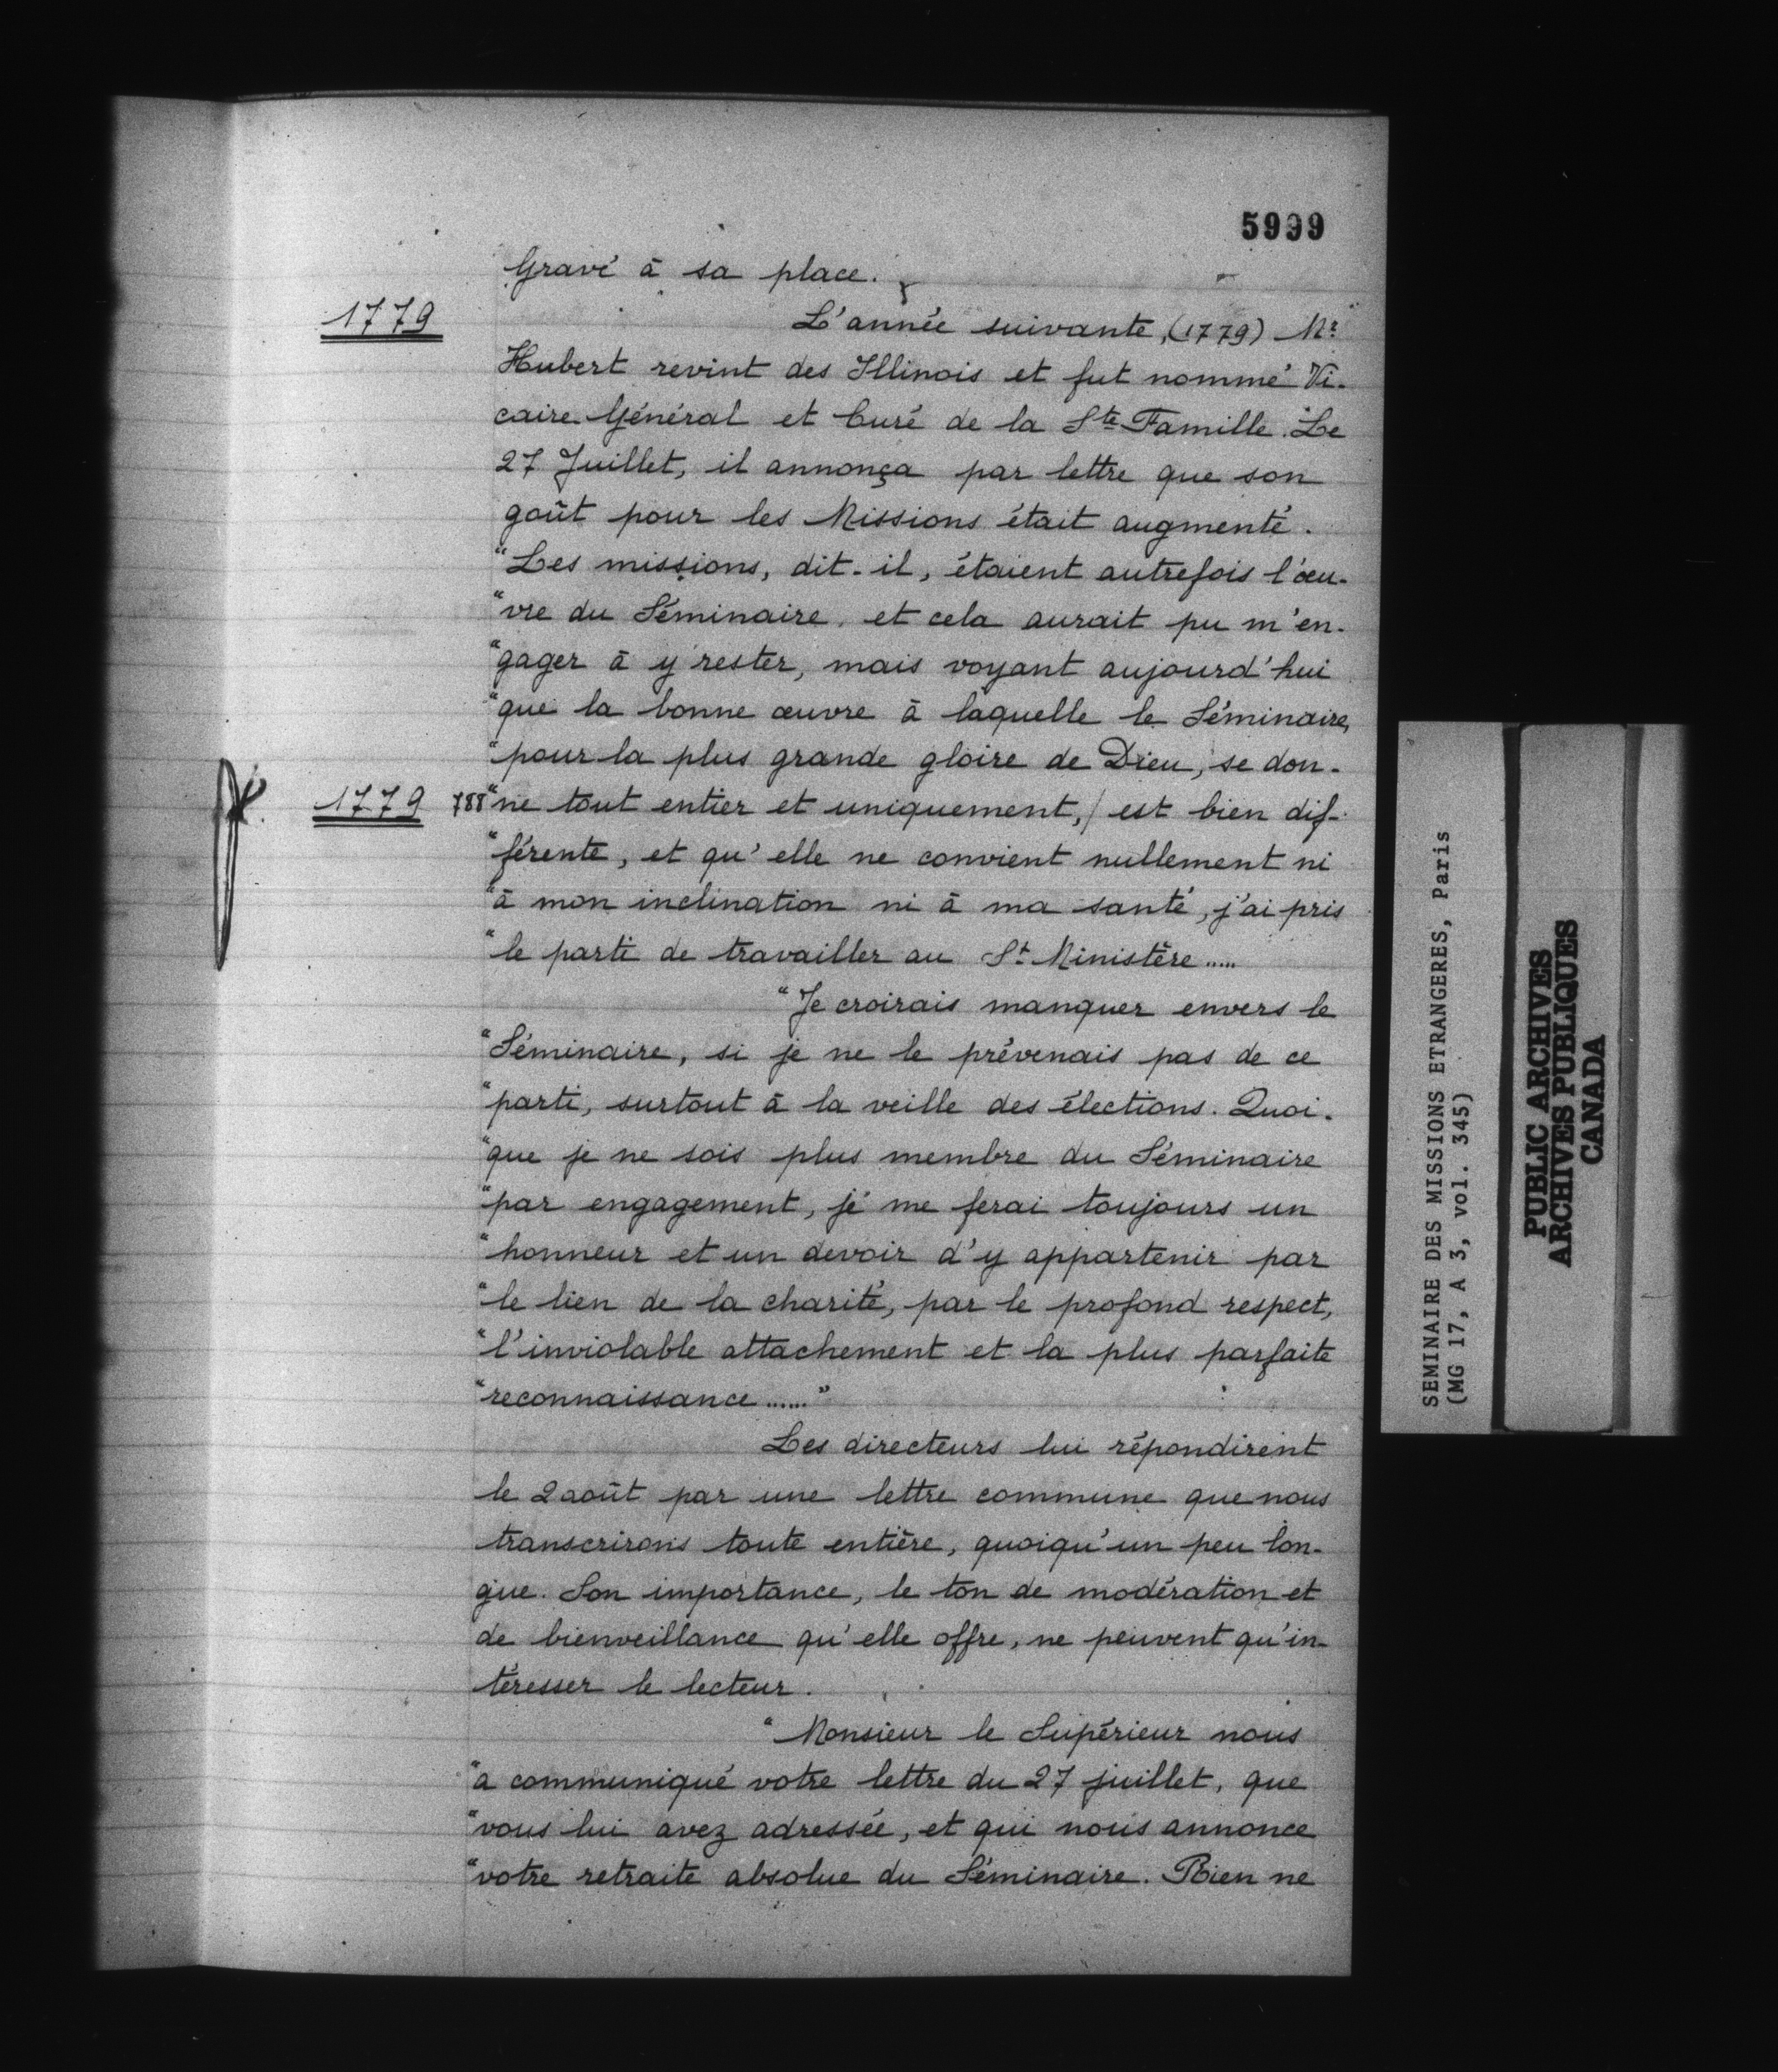 5999
Gravé à sa place.
1779
L'année suivante, (1779) Mr
Hubert revint des Illinois et fut nommé Vi-
caire Général et Curé de la Ste Famille. Le
27 Juillet, il annonça par lettre que son
goût pour les Missions était augmenté.
"Les missions, dit-il, étaient autrefois l'œu-
"vre du Séminaire, et cela aurait pu m'en-
"gager à y rester, mais voyant aujourd'hui
"que la bonne œuvre à laquelle le Séminaire,
"pour la plus grande gloire de Dieu, se don-
1779 788 "ne tout entier et uniquement,/ est bien dif-
"férente, et qu'elle ne convient nullement ni
"à mon inclination ni à ma santé, j'ai pris
"le parti de travailler au St Ministère.....
"Je croirais manquer envers le
"Séminaire, si je ne le prévenais pas de ce
"parti, surtout à la veille des élections. Quoi-
"que je ne sois plus membre du Séminaire
"par engagement, je me ferai toujours un
"honneur et un devoir d'y appartenir par
"le lien de la charité, par le profond respect,
"l'inviolable attachement et la plus parfaite
"reconnaissance......"
Les directeurs lui répondirent
le 2 août par une lettre commune que nous
transcrirons toute entière, quoiqu'un peu lon-
gue. Son importance, le ton de modération et
de bienveillance qu'elle offre, ne peuvent qu'in-
téresser le lecteur.
"Monsieur le Supérieur nous
"a communiqué votre lettre du 27 juillet, que
"vous lui avez adressée, et qui nous annonce
"votre retraite absolue du Séminaire. Rien ne
SEMINAIRE DES MISSIONS ETRANGERES, Paris
(MG 17, A 3, vol. 345)
PUBLIC ARCHIVES
ARCHIVES PUBLIQUES
CANADA